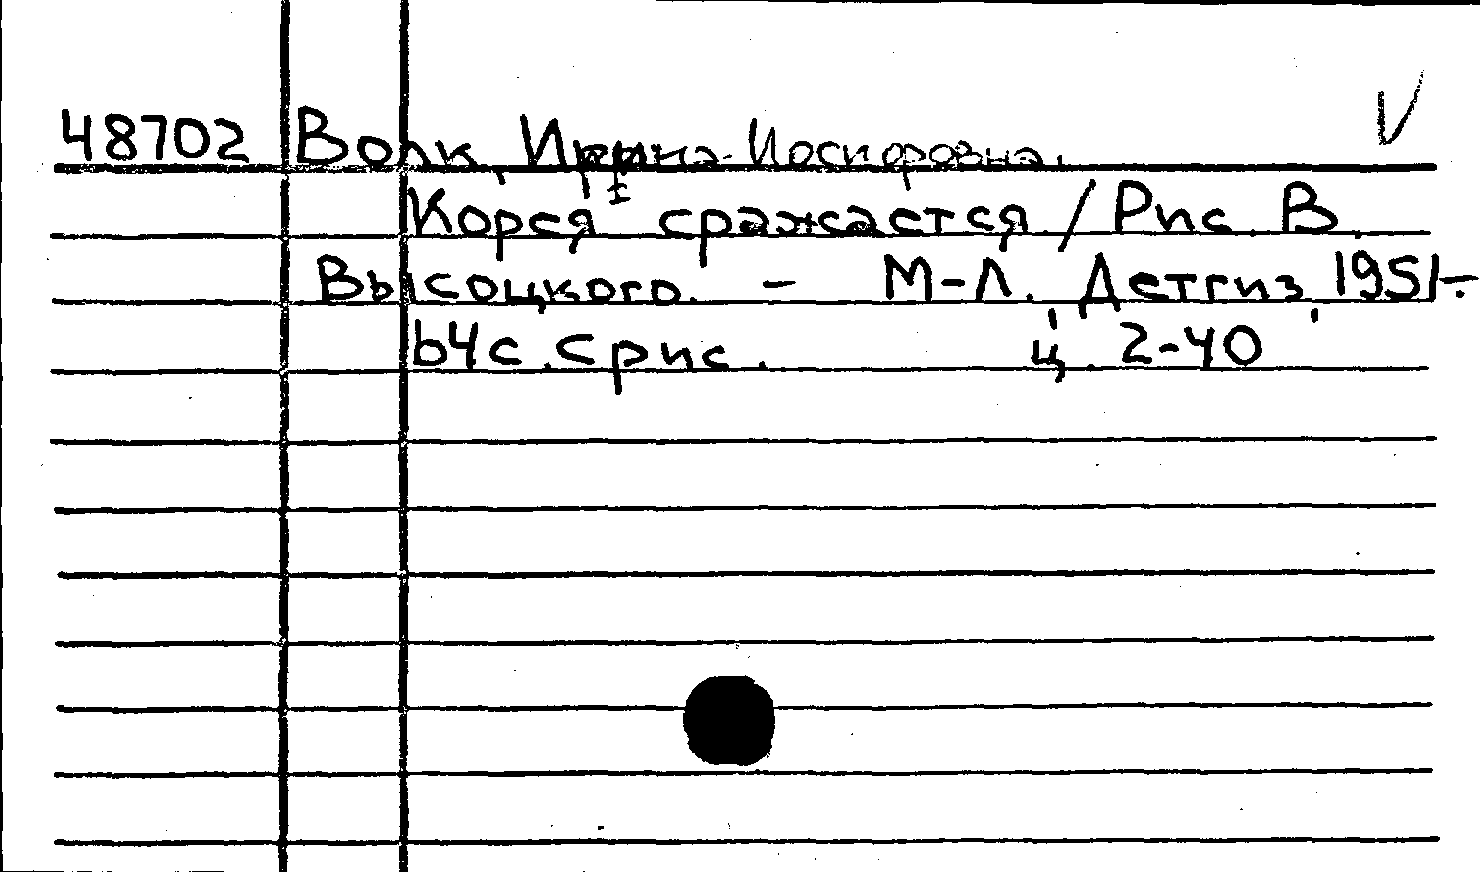 48702 Волк, Ирина Иосифовна.
Корея сражается / Рис. В.
Высоцкого. - М-Л. Детгиз, 1951.-
64с. с рис. ц. 2-40